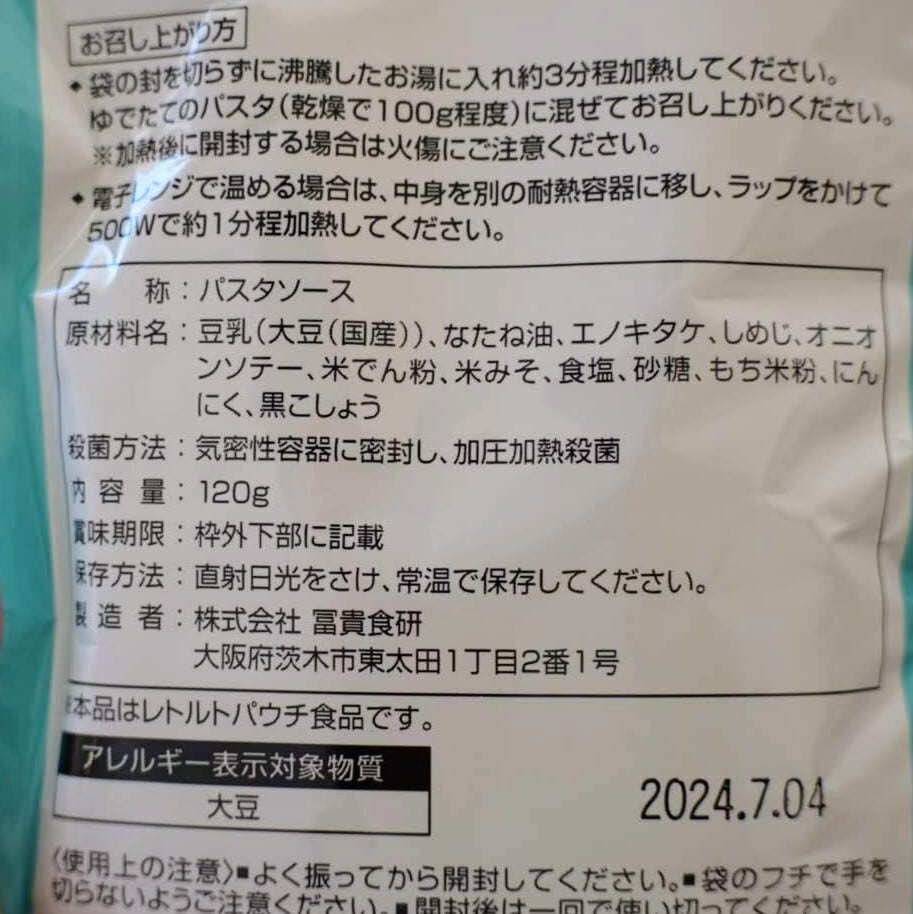 お召し上がり方
◆袋の封を切らずに沸騰したお湯に入れ約3分程加熱してください。
ゆでたてのパスタ(乾燥で100g程度)に混ぜてお召し上がりください。
※加熱後に開封する場合は火傷にご注意ください。
◆電子レンジで温める場合は、中身を別の耐熱容器に移し、ラップをかけて
500Wで約1分程加熱してください。
名称:パスタソース
原材料名:豆乳(大豆(国産))、なたね油、エノキタケ、しめじ、オニオ
ンソテー、米でん粉、米みそ、食塩、砂糖、もち米粉、にん
にく、黒こしょう
殺菌方法:気密性容器に密封し、加圧加熱殺菌
内容量:120g
賞味期限:枠外下部に記載
保存方法:直射日光をさけ、常温で保存してください。
製造者:株式会社 冨貴食研
大阪府茨木市東太田1丁目2番1号
※本品はレトルトパウチ食品です。
アレルギー表示対象物質
大豆
2024.7.04
〈使用上の注意〉■よく振ってから開封してください。■袋のフチで手を
切らないようご注意ください。■開封後は一回で使い切ってください。